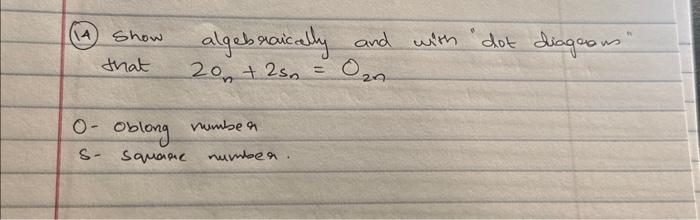 14 Show algebraically and with "dot diagrams"
that 2O_n + 2S_n = O_2n
O - Oblong number
S - square number.